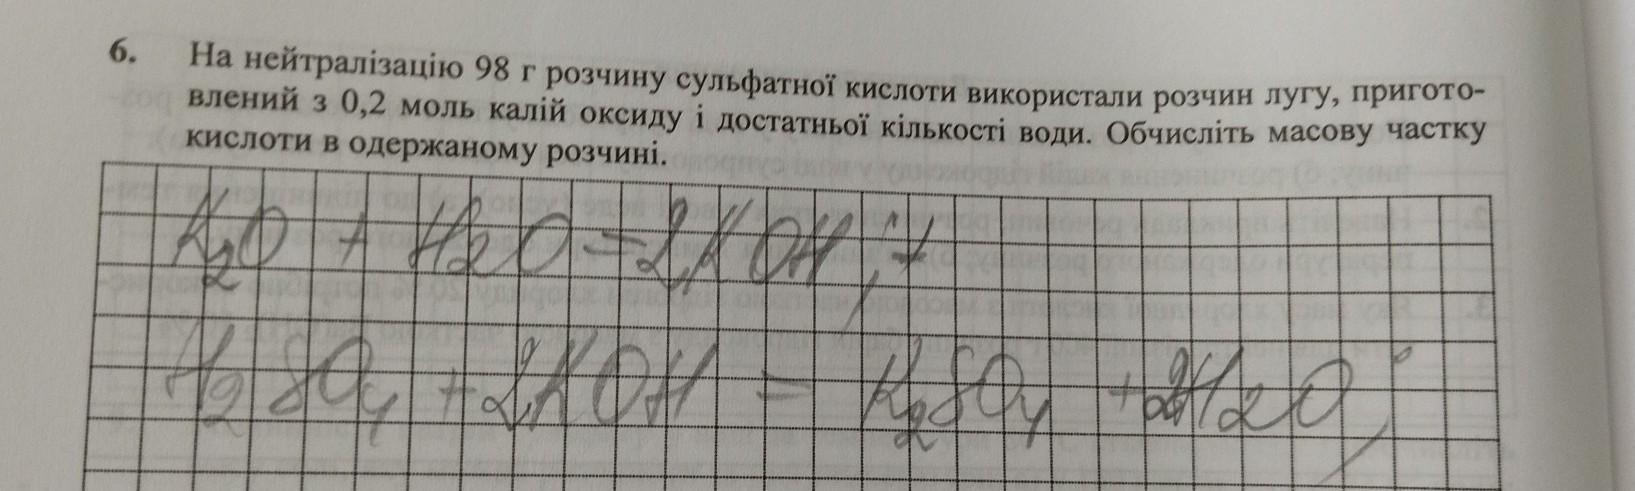 6. На нейтралізацію 98 г розчину сульфатної кислоти використали розчин лугу, пригото-
влений з 0,2 моль калій оксиду і достатньої кількості води. Обчисліть масову частку
кислоти в одержаному розчині.
K2O + H2O = 2KOH;
H2SO4 + 2KOH = K2SO4 + 2H2O;